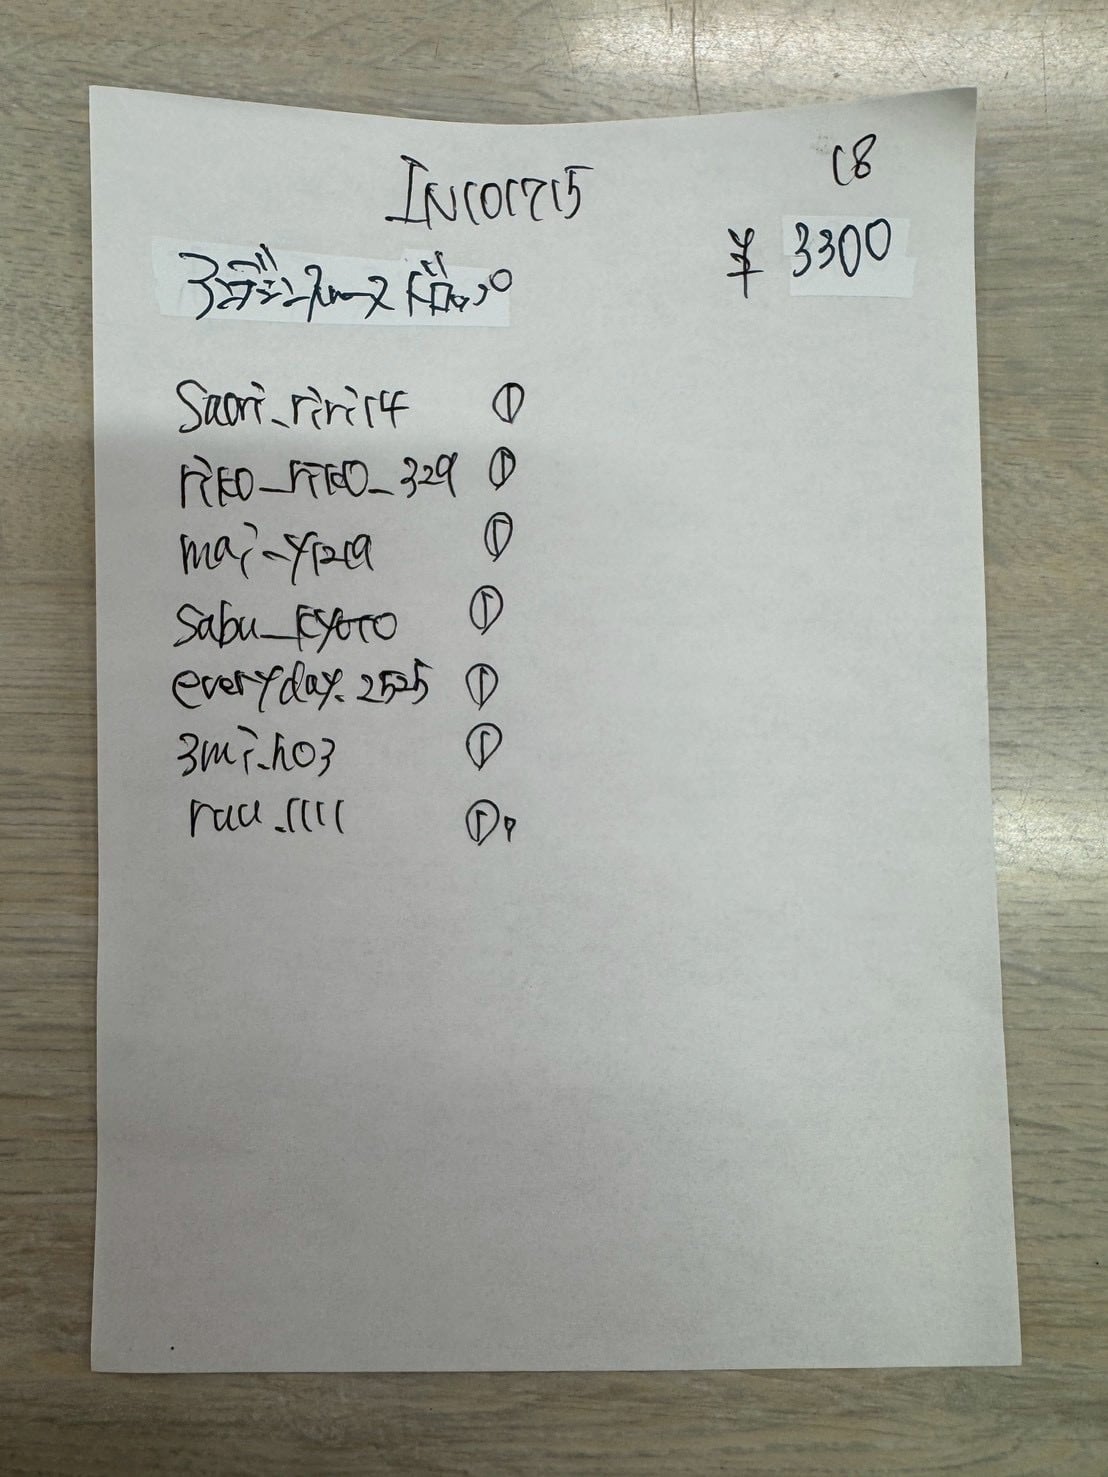 18
IN101715
¥ 3300
3デニムレースドロップ
Saori_riri14 ①
riko_riko_329 ①
mai_y1219 ①
Sabu_kyoto ①
everyday.2525 ①
3mi.ho3 ①
ruu_1111 ①